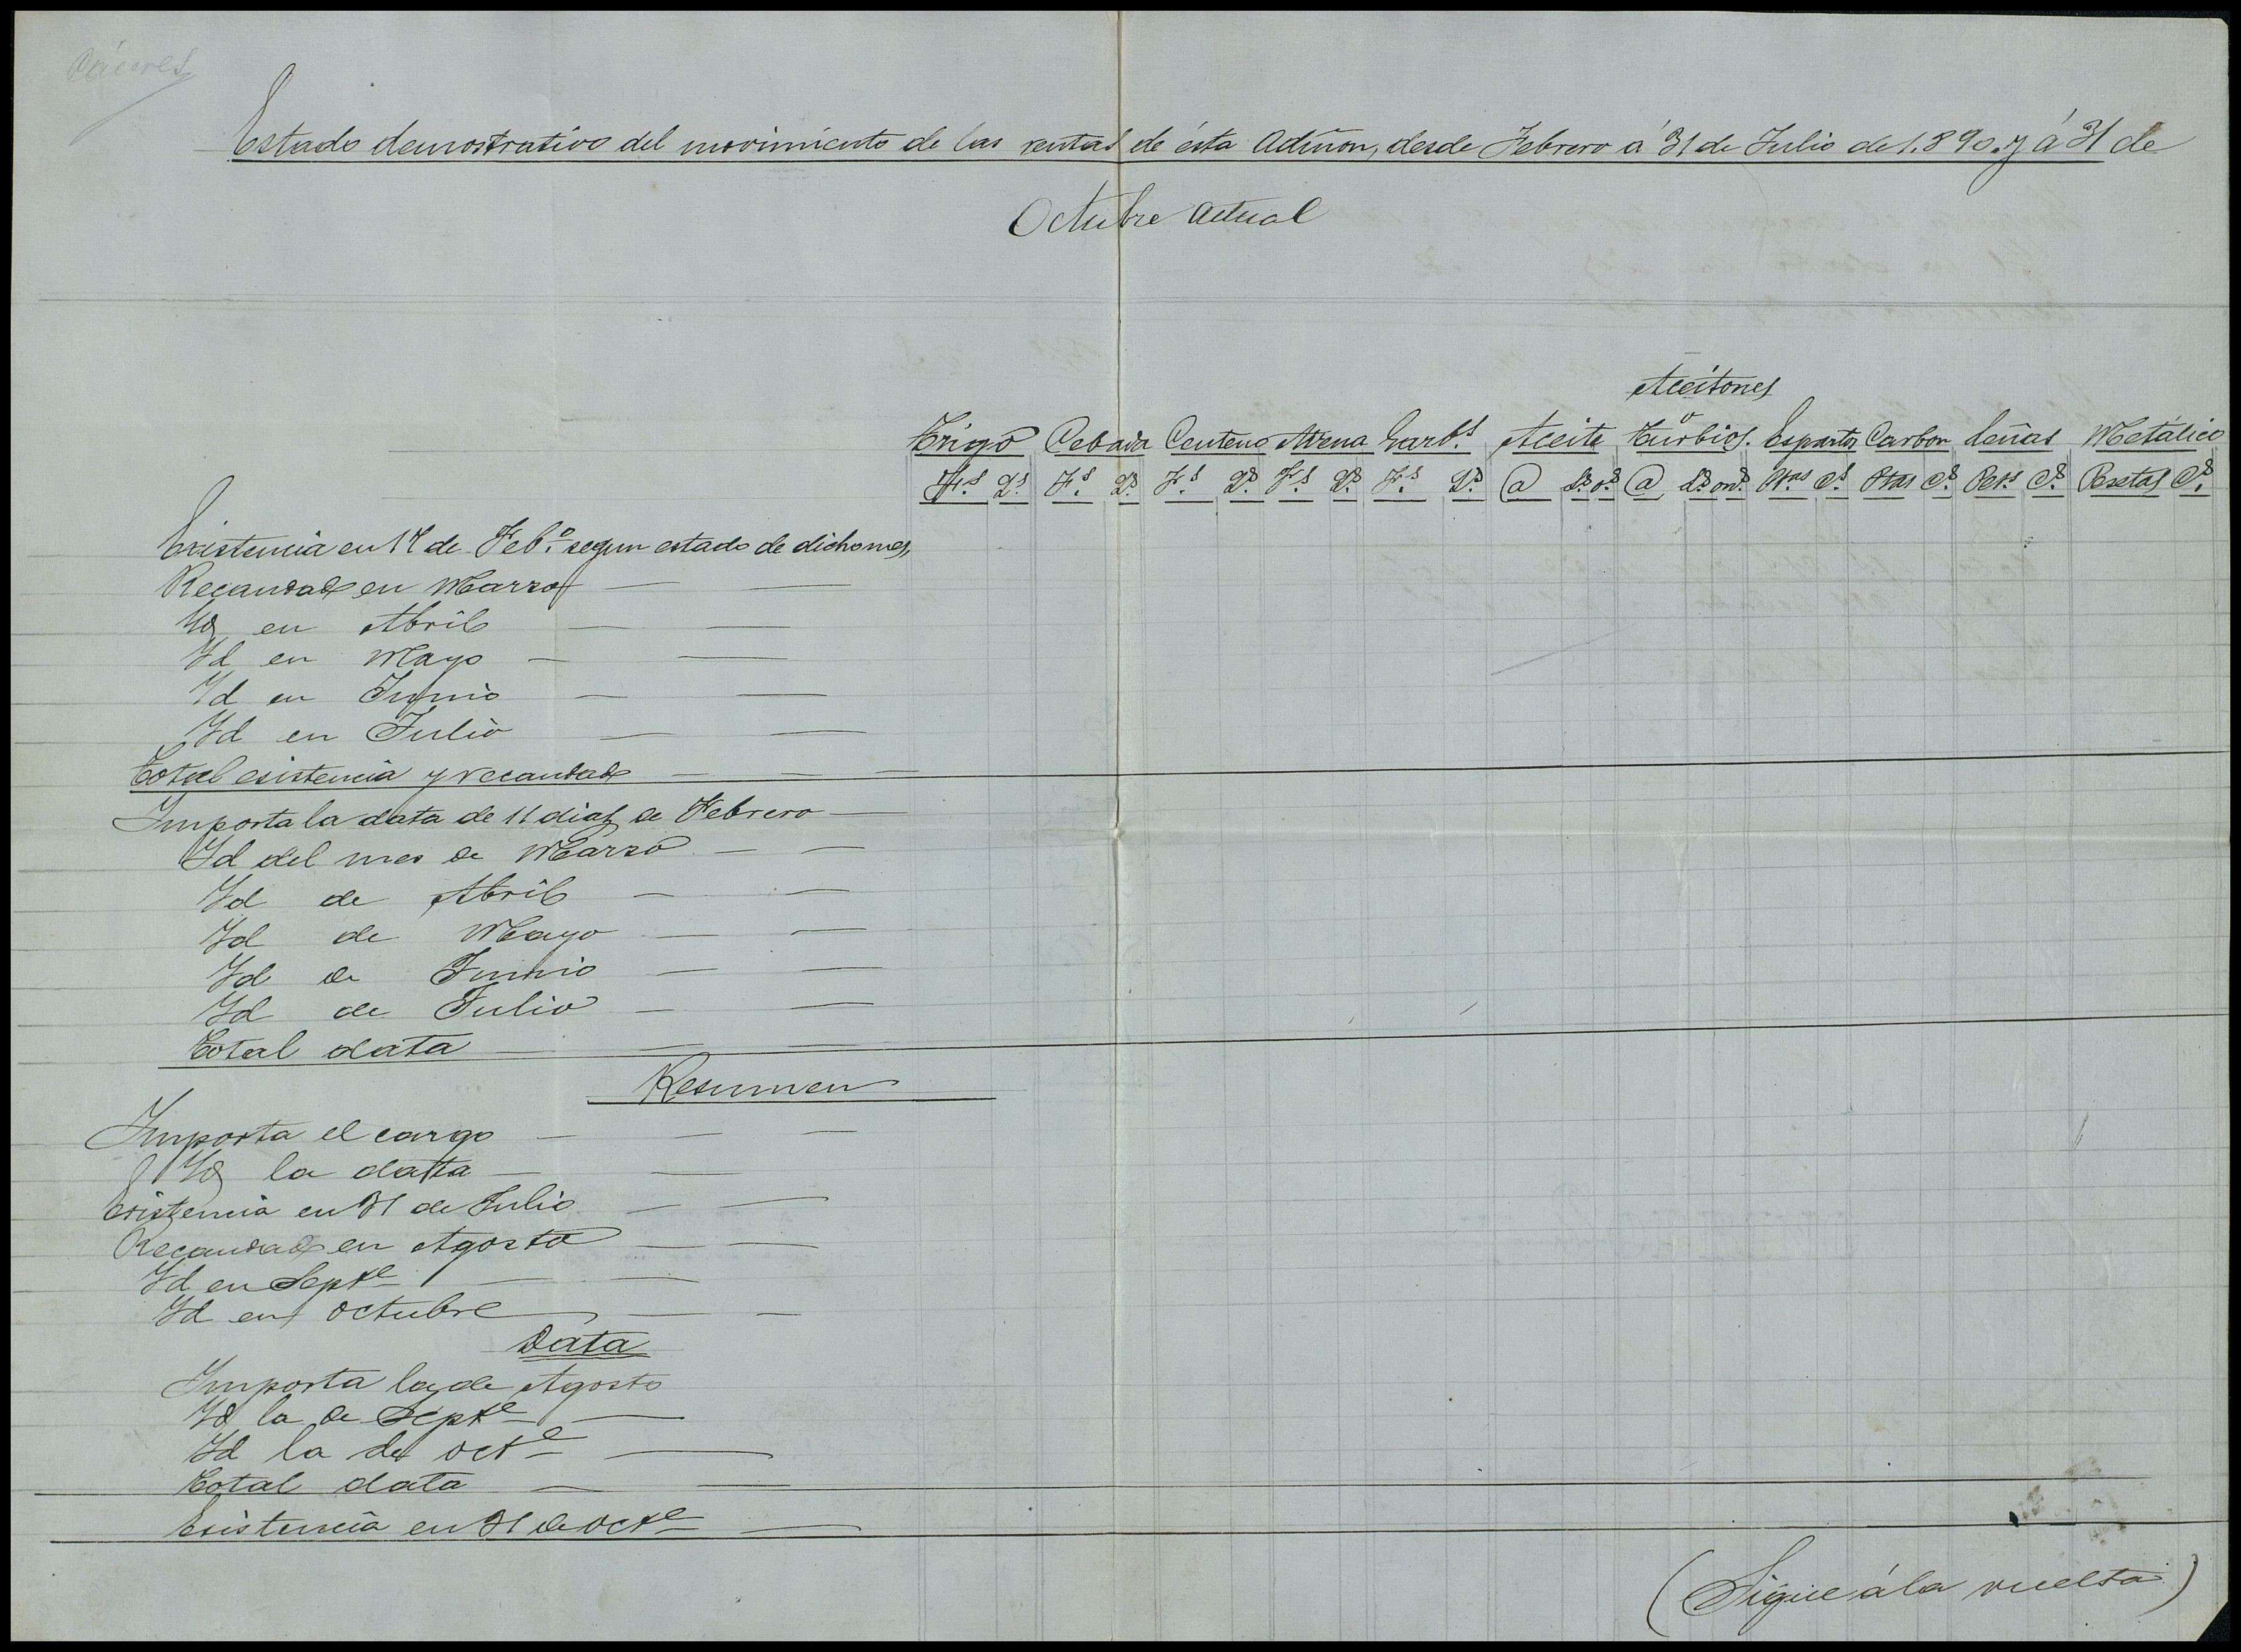 Cáceres
Estado demostrativo del movimiento de las rentas de ésta Admon, desde Febrero á 31 de Julio de 1.890. y á 31 de
Octubre actual
Aceitones
ó
Trigo Cebada Centeno Avena Garbs. Aceite Turbios. Espartos Carbon Leñas Metálico
Fs. Ls. Fs. Ls. Fs. Ls. Fs. Ls. Fs. Ls. @ Ls. os. @ Ls. ons. Ptas Cs. Ptas Cs. Pets. Cs. Pesetas Cs.
Existencia en 17 de Febo. segun estado de dicho mes,
Recaudado en Marzo — —
Id en Abril — —
Id en Mayo — —
Id en Junio — —
Id en Julio — —
Total esistencia y recaudado — — —
Importa la data de 11 dias de Febrero —
Id del mes de Marzo — —
Id de Abril — —
Id de Mayo — —
Id de Junio — —
Id de Julio — —
Total data — — —
Resumen
Importa el cargo — — —
Id la data — —
Existencia en 31 de Julio — —
Recaudado en Agosto — —
Id en Septe — —
Id en Octubre — —
Data
Importa la de Agosto
Id la de Septe —
Id la de Octe —
Total data — —
Esistencia en 31 de Octe —
(Sigue á la vuelta)